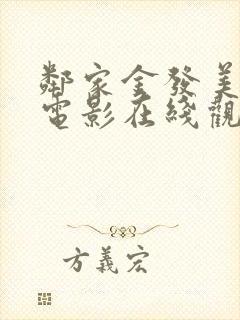 鄰家金發美
電影在綫觀
方義宏